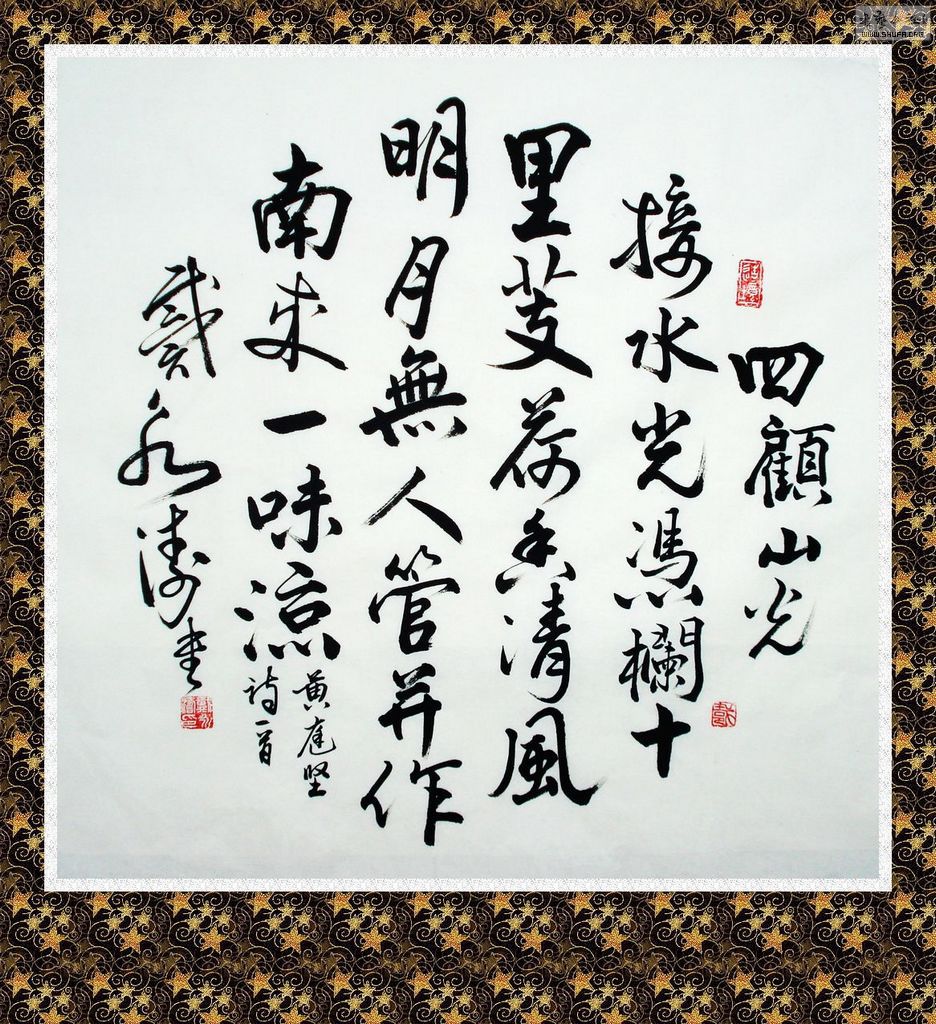 四顧山光
接水光馮欄十
里芰荷香清風
明月無人管并作
南來一味涼
黄庭坚
詩一首
戴永濤書
WWW.SHUFA.ORG